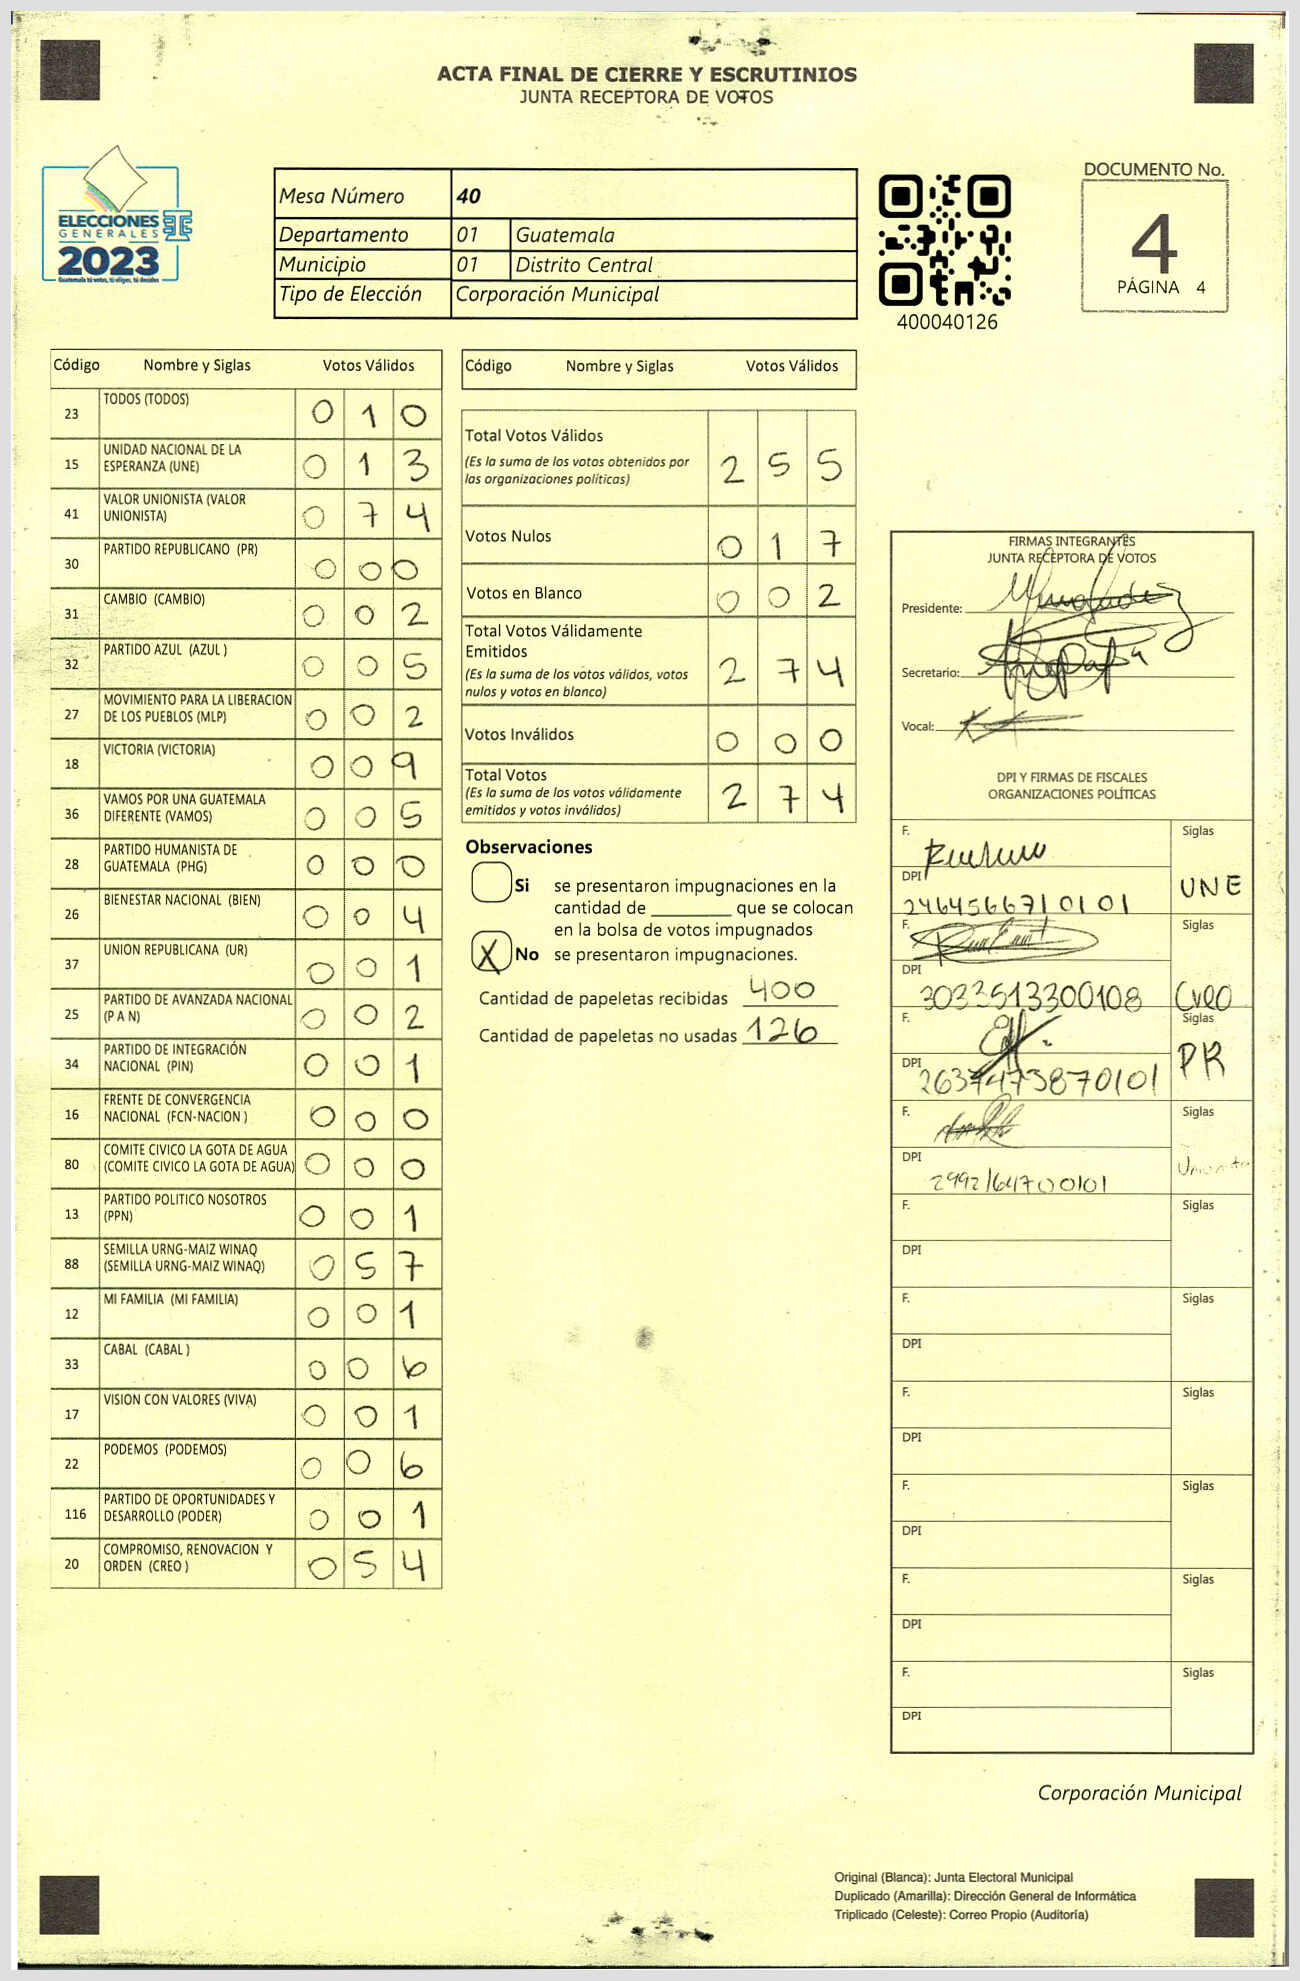 ACTA FINAL DE CIERRE Y ESCRUTINIOS
JUNTA RECEPTORA DE VOTOS
ELECCIONES
GENERALES
2023
Guatemala tú votas, tú eliges, tú decides
Mesa Número 40
Departamento 01 Guatemala
Municipio 01 Distrito Central
Tipo de Elección Corporación Municipal
400040126
DOCUMENTO No.
4
PÁGINA 4
Código Nombre y Siglas Votos Válidos
23 TODOS (TODOS) 0 1 0
15 UNIDAD NACIONAL DE LA
ESPERANZA (UNE) 0 1 3
41 VALOR UNIONISTA (VALOR
UNIONISTA) 0 7 4
30 PARTIDO REPUBLICANO (PR) 0 0 0
31 CAMBIO (CAMBIO) 0 0 2
32 PARTIDO AZUL (AZUL ) 0 0 5
27 MOVIMIENTO PARA LA LIBERACION
DE LOS PUEBLOS (MLP) 0 0 2
18 VICTORIA (VICTORIA) 0 0 9
36 VAMOS POR UNA GUATEMALA
DIFERENTE (VAMOS) 0 0 5
28 PARTIDO HUMANISTA DE
GUATEMALA (PHG) 0 0 0
26 BIENESTAR NACIONAL (BIEN) 0 0 4
37 UNION REPUBLICANA (UR) 0 0 1
25 PARTIDO DE AVANZADA NACIONAL
(P A N) 0 0 2
34 PARTIDO DE INTEGRACIÓN
NACIONAL (PIN) 0 0 1
16 FRENTE DE CONVERGENCIA
NACIONAL (FCN-NACION ) 0 0 0
80 COMITE CIVICO LA GOTA DE AGUA
(COMITE CIVICO LA GOTA DE AGUA) 0 0 0
13 PARTIDO POLITICO NOSOTROS
(PPN) 0 0 1
88 SEMILLA URNG-MAIZ WINAQ
(SEMILLA URNG-MAIZ WINAQ) 0 5 7
12 MI FAMILIA (MI FAMILIA) 0 0 1
33 CABAL (CABAL ) 0 0 6
17 VISION CON VALORES (VIVA) 0 0 1
22 PODEMOS (PODEMOS) 0 0 6
116 PARTIDO DE OPORTUNIDADES Y
DESARROLLO (PODER) 0 0 1
20 COMPROMISO, RENOVACION Y
ORDEN (CREO ) 0 5 4
Código Nombre y Siglas Votos Válidos
Total Votos Válidos
(Es la suma de los votos obtenidos por
las organizaciones políticas) 2 5 5
Votos Nulos 0 1 7
Votos en Blanco 0 0 2
Total Votos Válidamente
Emitidos
(Es la suma de los votos válidos, votos
nulos y votos en blanco) 2 7 4
Votos Inválidos 0 0 0
Total Votos
(Es la suma de los votos válidamente
emitidos y votos inválidos) 2 7 4
Observaciones
Si se presentaron impugnaciones en la
cantidad de ________ que se colocan
en la bolsa de votos impugnados
X No se presentaron impugnaciones.
Cantidad de papeletas recibidas 400
Cantidad de papeletas no usadas 126
FIRMAS INTEGRANTES
JUNTA RECEPTORA DE VOTOS
Presidente:
Secretario:
Vocal:
DPI Y FIRMAS DE FISCALES
ORGANIZACIONES POLÍTICAS
F. Siglas
DPI UNE
2464566710101
F. Siglas
DPI
3033513300108 Creo
F. Siglas
DPI PR
2637473870101
F. Siglas
DPI
2992164700101
F. Siglas
DPI
F. Siglas
DPI
F. Siglas
DPI
F. Siglas
DPI
F. Siglas
DPI
F. Siglas
DPI
Corporación Municipal
Original (Blanca): Junta Electoral Municipal
Duplicado (Amarilla): Dirección General de Informática
Triplicado (Celeste): Correo Propio (Auditoría)